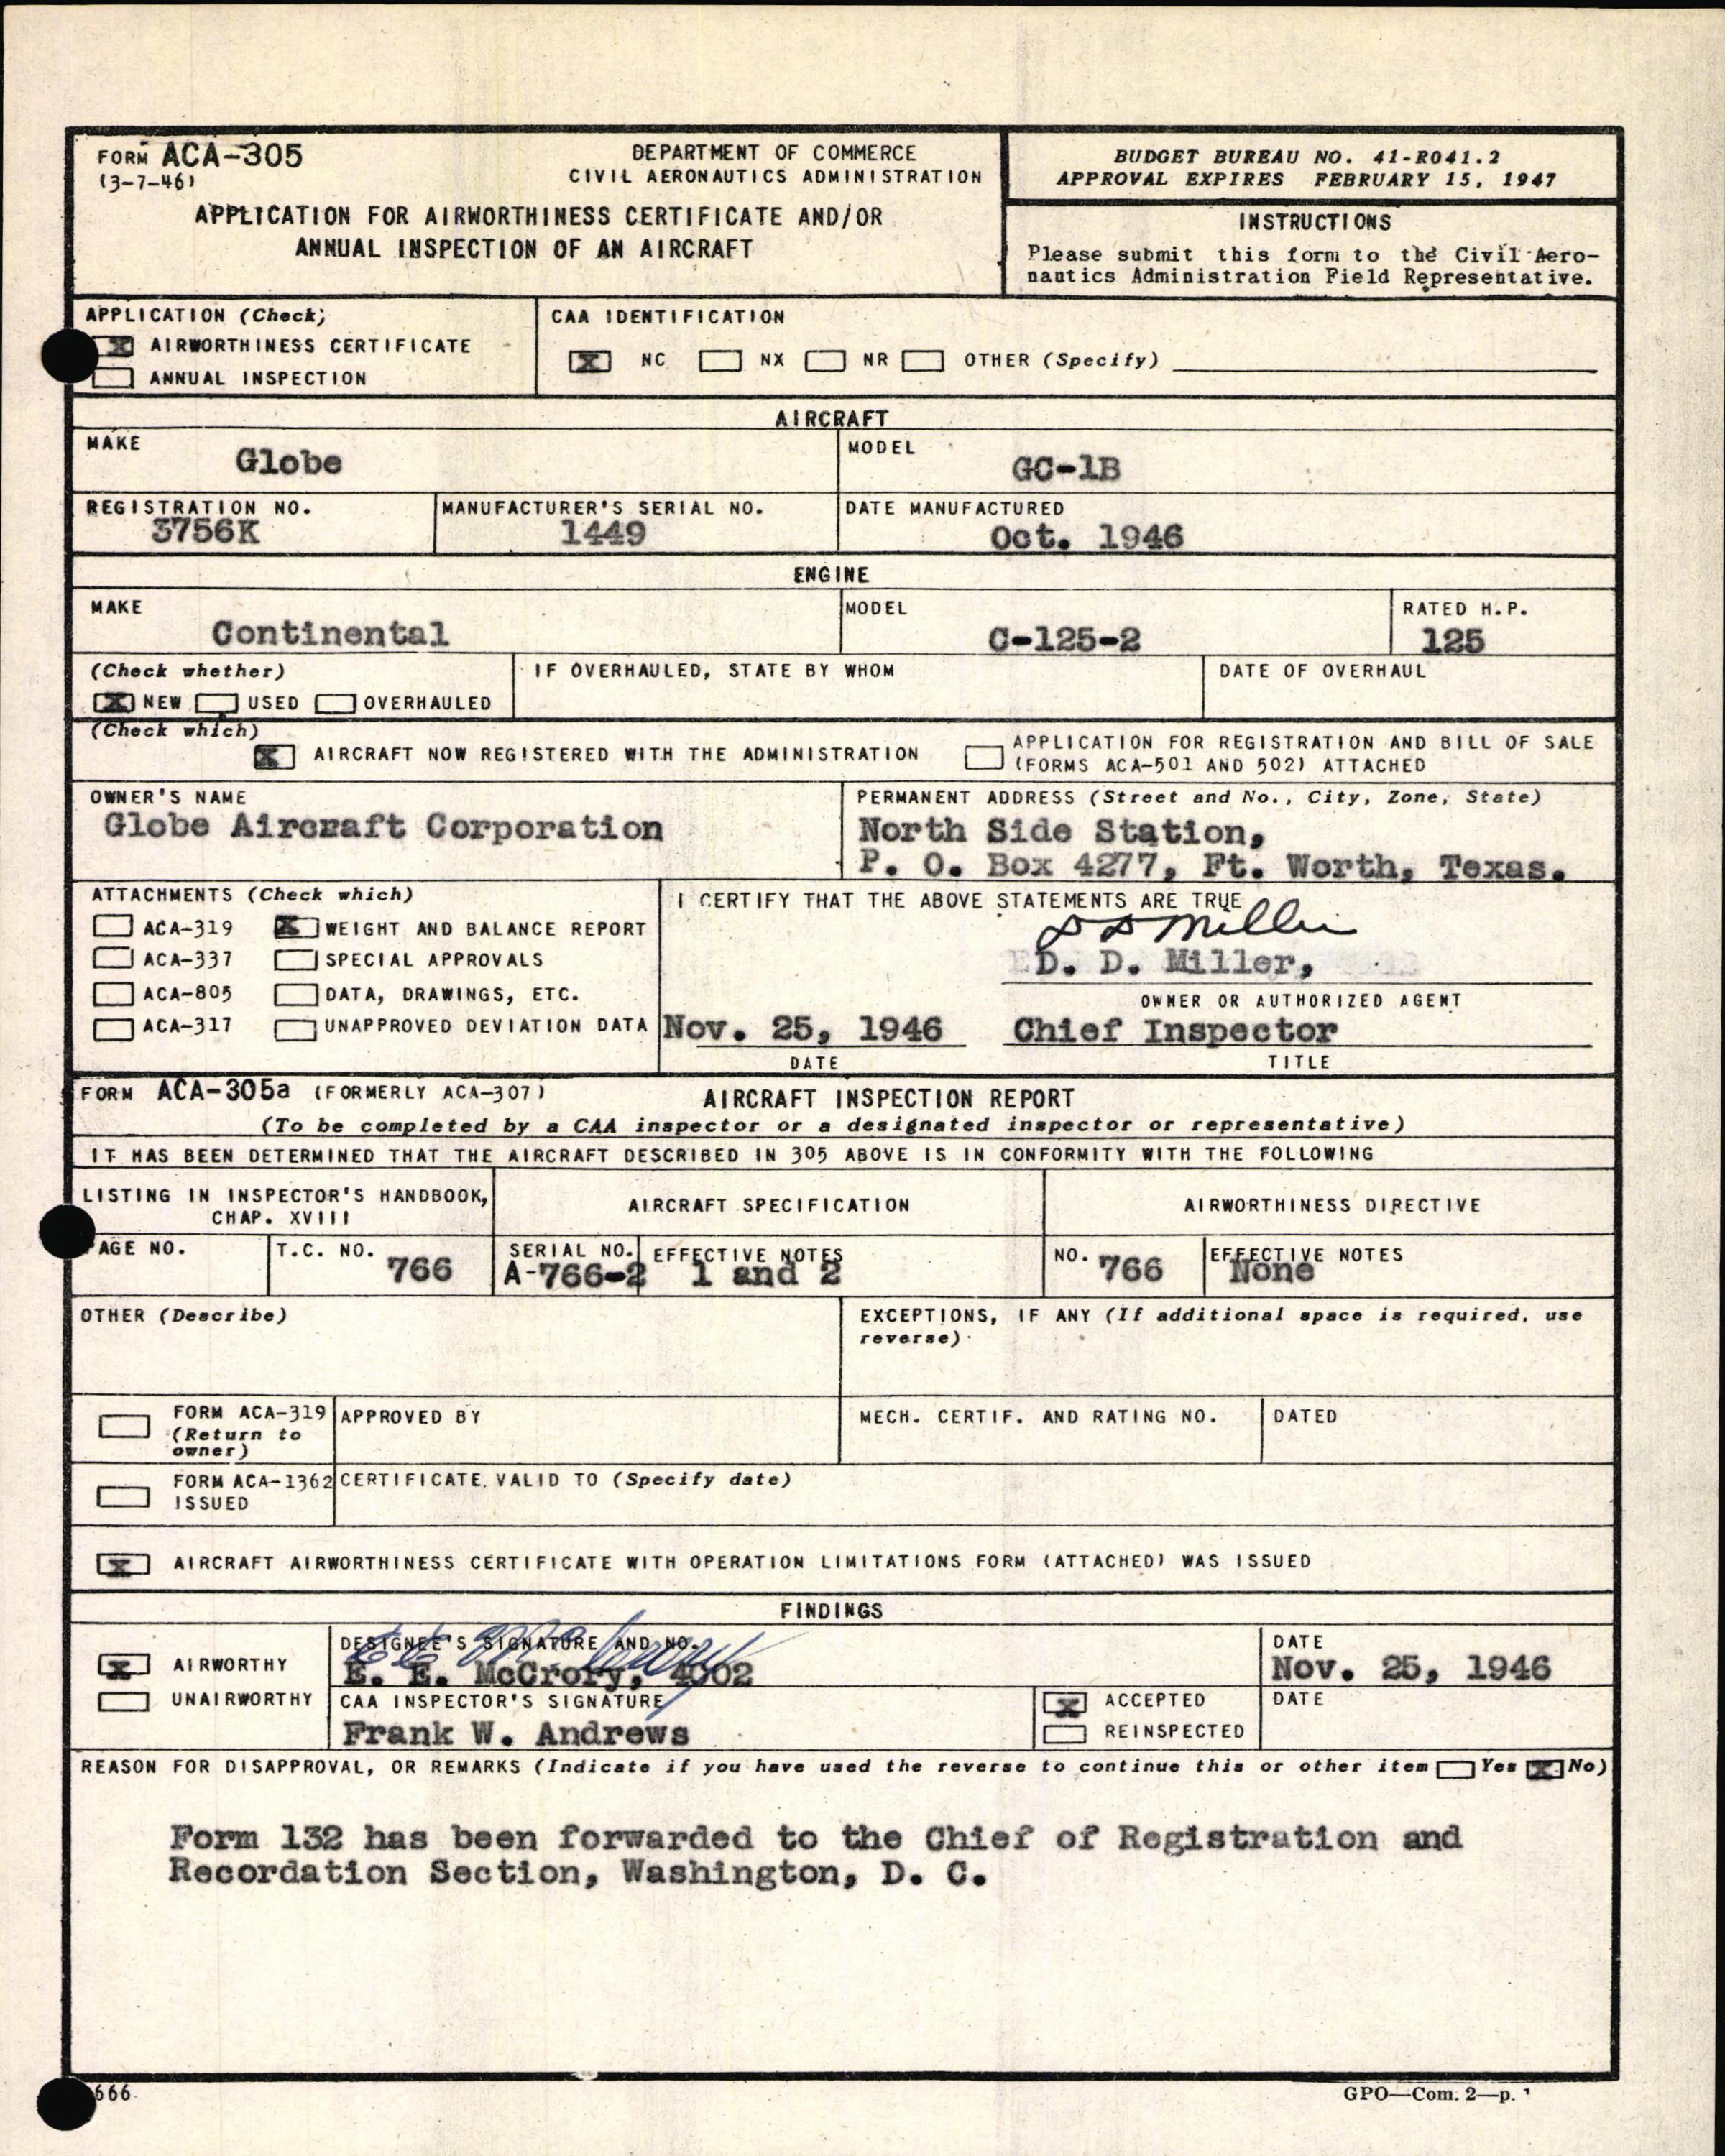 FORM ACA-305
(3-7-46)
DEPARTMENT OF COMMERCE
CIVIL AERONAUTICS ADMINISTRATION
APPLICATION FOR AIRWORTHINESS CERTIFICATE AND/OR
ANNUAL INSPECTION OF AN AIRCRAFT
BUDGET BUREAU NO. 41-R041.2
APPROVAL EXPIRES FEBRUARY 15, 1947
INSTRUCTIONS
Please submit this form to the Civil Aero-
nautics Administration Field Representative.
APPLICATION (Check)
X AIRWORTHINESS CERTIFICATE
ANNUAL INSPECTION
CAA IDENTIFICATION
X NC NX NR OTHER (Specify)
AIRCRAFT
MAKE
Globe
MODEL
GC-1B
REGISTRATION NO.
3756K
MANUFACTURER'S SERIAL NO.
1449
DATE MANUFACTURED
Oct. 1946
ENGINE
MAKE
Continental
MODEL
C-125-2
RATED H.P.
125
(Check whether)
X NEW USED OVERHAULED
IF OVERHAULED, STATE BY WHOM
DATE OF OVERHAUL
(Check which)
X AIRCRAFT NOW REGISTERED WITH THE ADMINISTRATION
APPLICATION FOR REGISTRATION AND BILL OF SALE
(FORMS ACA-501 AND 502) ATTACHED
OWNER'S NAME
Globe Aircraft Corporation
PERMANENT ADDRESS (Street and No., City, Zone, State)
North Side Station,
P. O. Box 4277, Ft. Worth, Texas.
ATTACHMENTS (Check which)
ACA-319 X WEIGHT AND BALANCE REPORT
ACA-337 SPECIAL APPROVALS
ACA-805 DATA, DRAWINGS, ETC.
ACA-317 UNAPPROVED DEVIATION DATA
I CERTIFY THAT THE ABOVE STATEMENTS ARE TRUE
D D Miller
D. D. Miller,
OWNER OR AUTHORIZED AGENT
Nov. 25, 1946 Chief Inspector
DATE TITLE
FORM ACA-305a (FORMERLY ACA-307) AIRCRAFT INSPECTION REPORT
(To be completed by a CAA inspector or a designated inspector or representative)
IT HAS BEEN DETERMINED THAT THE AIRCRAFT DESCRIBED IN 305 ABOVE IS IN CONFORMITY WITH THE FOLLOWING
LISTING IN INSPECTOR'S HANDBOOK,
CHAP. XVIII
AIRCRAFT SPECIFICATION
AIRWORTHINESS DIRECTIVE
PAGE NO.
T.C. NO. 766
SERIAL NO.
A-766-2
EFFECTIVE NOTES
1 and 2
NO. 766
EFFECTIVE NOTES
None
OTHER (Describe)
EXCEPTIONS, IF ANY (If additional space is required, use
reverse)
FORM ACA-319
(Return to
owner)
APPROVED BY
MECH. CERTIF. AND RATING NO.
DATED
FORM ACA-1362
ISSUED
CERTIFICATE VALID TO (Specify date)
X AIRCRAFT AIRWORTHINESS CERTIFICATE WITH OPERATION LIMITATIONS FORM (ATTACHED) WAS ISSUED
FINDINGS
X AIRWORTHY
UNAIRWORTHY
DESIGNEE'S SIGNATURE AND NO.
E E McCrory
E. E. McCrory, 4002
DATE
Nov. 25, 1946
CAA INSPECTOR'S SIGNATURE
Frank W. Andrews
X ACCEPTED
REINSPECTED
DATE
REASON FOR DISAPPROVAL, OR REMARKS (Indicate if you have used the reverse to continue this or other item Yes X No)
Form 132 has been forwarded to the Chief of Registration and
Recordation Section, Washington, D. C.
666
GPO—Com. 2—p. 1